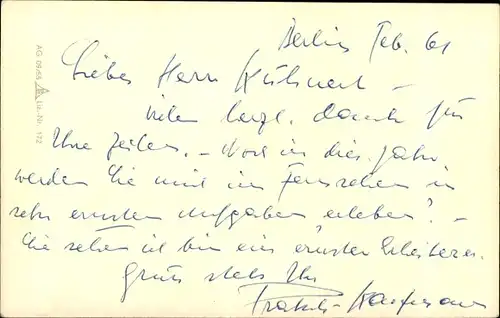 Berlin Feb. 61
Liebes Herr Kühnert –
Vielen herzl. Dank für
Ihre Zeilen. – Noch in dies. Jahr
werden Sie mich im Fernsehen in
sehr ernsten Aufgaben erleben? –
Sie sehen ich bin ein ernster
Gruss stets Ihr
AG 09/65
Liz.-Nr. 172